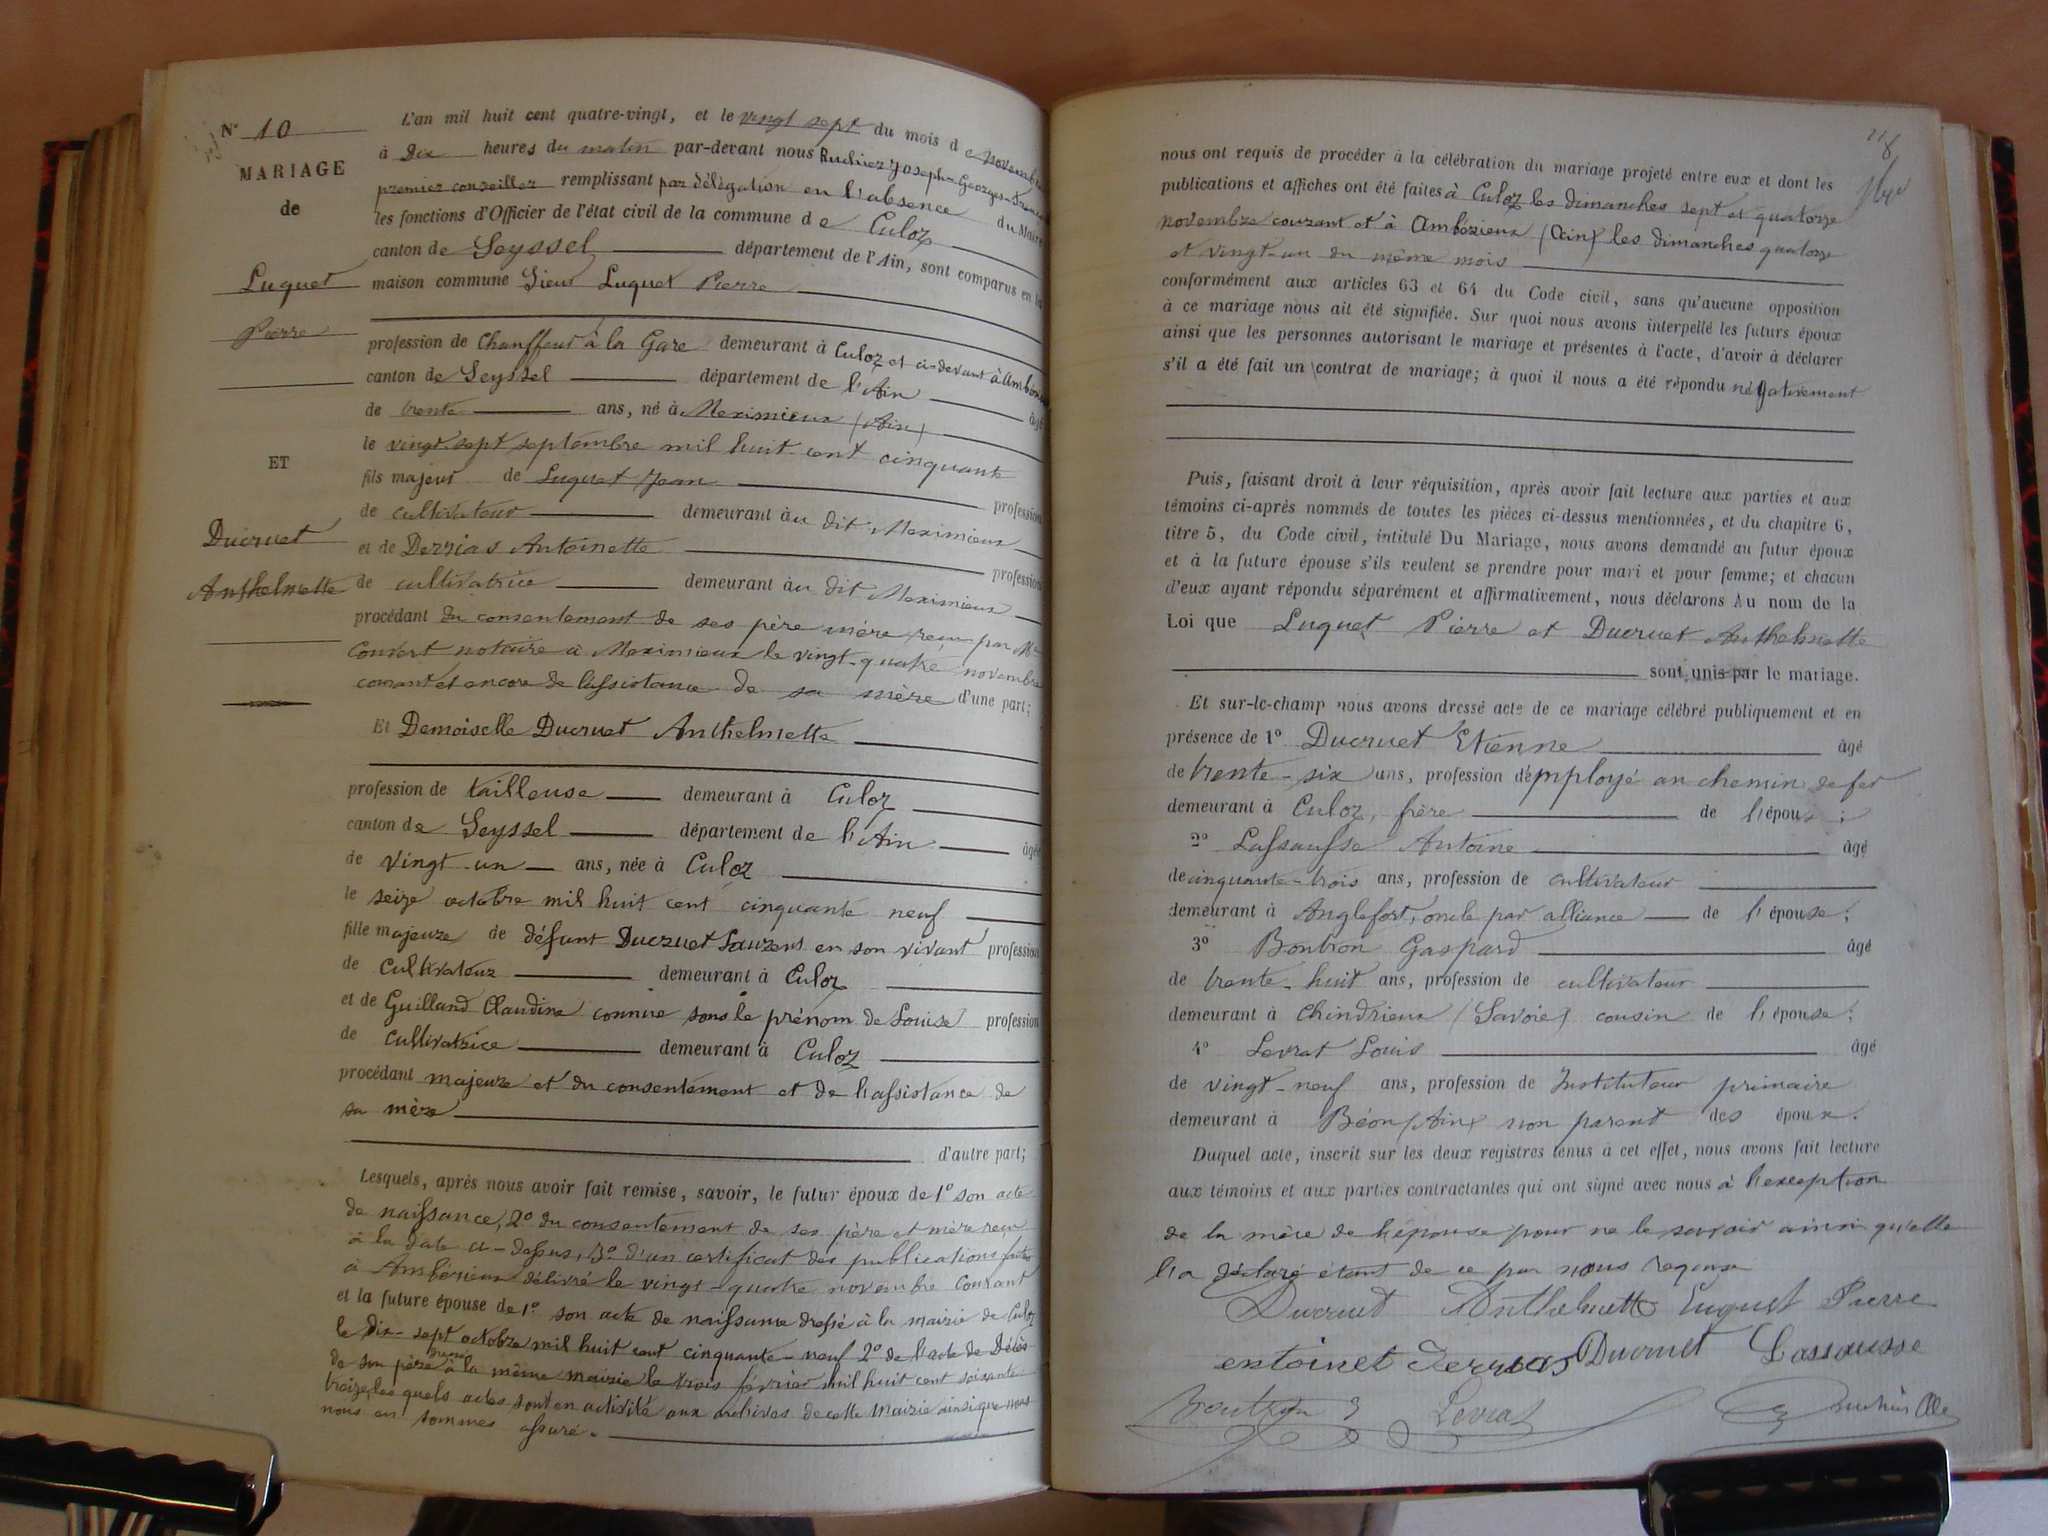 N° 10
MARIAGE
de
Luquet
Pierre
ET
Ducruet
Anthelmette
L'an mil huit cent quatre-vingt, et le vingt sept du mois de novembre
à Dix heures du matin par-devant nous Joseph-Georges
premier conseiller remplissant par délégation en l'absence du Maire
les fonctions d'Officier de l'état civil de la commune de Culoz
canton de Seyssel département de l'Ain, sont comparus en la
maison commune Sieur Luquet Pierre
profession de Chauffeur à la Gare demeurant à Culoz et ci-devant à
canton de Seyssel département de l'Ain âgé
de trente ans, né à Meximieux (Ain)
le vingt-sept septembre mil huit cent cinquante
fils majeur de Luquet Jean profession
de cultivateur demeurant au dit Meximieux
et de Derrias Antoinette profession
de cultivatrice demeurant au dit Meximieux
procédant du consentement de ses père mère reçu par Me
Convert notaire à Meximieux le vingt-quatre novembre
courant et encore de l'assistance de sa mère d'une part;
Et Demoiselle Ducruet Anthelmette
profession de tailleuse demeurant à Culoz
canton de Seyssel département de l'Ain âgée
de Vingt-un ans, née à Culoz
le seize octobre mil huit cent cinquante neuf
fille majeure de défunt Ducruet Laurent en son vivant profession
de Cultivateur demeurant à Culoz
et de Guilland Claudine connue sous le prénom de Louise profession
de cultivatrice demeurant à Culoz
procédant majeure et du consentement et de l'assistance de
sa mère
d'autre part;
Lesquels, après nous avoir fait remise, savoir, le futur époux de 1° son acte
de naissance, 2° du consentement de ses père et mère reçu
à la date ci-dessus, 3° d'un certificat des publications faites
à Ambérieux délivré le vingt-quatre novembre courant
et la future épouse de 1° son acte de naissance dressé à la mairie de Culoz
le dix-sept octobre mil huit cent cinquante-neuf 2° de l'acte de Décès
de son père dressé à la même mairie le trois février mil huit cent soixante
treize, les quels actes sont en activité aux archives de cette Mairie ainsi que nous
nous en sommes assuré.
nous ont requis de procéder à la célébration du mariage projeté entre eux et dont les
publications et affiches ont été faites à Culoz les dimanches sept et quatorze
novembre courant et à Ambérieux (Ain) les dimanches quatorze
et vingt-un du même mois
conformément aux articles 63 et 64 du Code civil, sans qu'aucune opposition
à ce mariage nous ait été signifiée. Sur quoi nous avons interpellé les futurs époux
ainsi que les personnes autorisant le mariage et présentes à l'acte, d'avoir à déclarer
s'il a été fait un contrat de mariage; à quoi il nous a été répondu négativement
Puis, faisant droit à leur réquisition, après avoir fait lecture aux parties et aux
témoins ci-après nommés de toutes les pièces ci-dessus mentionnées, et du chapitre 6,
titre 5, du Code civil, intitulé Du Mariage, nous avons demandé au futur époux
et à la future épouse s'ils veulent se prendre pour mari et pour femme; et chacun
d'eux ayant répondu séparément et affirmativement, nous déclarons Au nom de la
Loi que Luquet Pierre et Ducruet Anthelmette
sont unis par le mariage.
Et sur-le-champ nous avons dressé acte de ce mariage célébré publiquement et en
présence de 1° Ducruet Etienne âgé
de trente-six ans, profession d'employé au chemin de fer
demeurant à Culoz, frère de l'épouse;
2° Lassausse Antoine âgé
de cinquante-trois ans, profession de cultivateur
demeurant à Anglefort, oncle par alliance de l'épouse;
3° Bontron Gaspard âgé
de trente-huit ans, profession de cultivateur
demeurant à Chindrieux (Savoie) cousin de l'épouse;
4° Levrat Louis âgé
de vingt-neuf ans, profession de Instituteur primaire
demeurant à Béon (Ain) non parent des époux.
Duquel acte, inscrit sur les deux registres tenus à cet effet, nous avons fait lecture
aux témoins et aux parties contractantes qui ont signé avec nous à l'exception
de la mère de l'épouse pour ne le savoir ainsi qu'elle
l'a déclaré étant de ce par nous requise
Ducruet Anthelmette Luquet Pierre
entoinet Derrias Ducruet Lassausse
Levrat